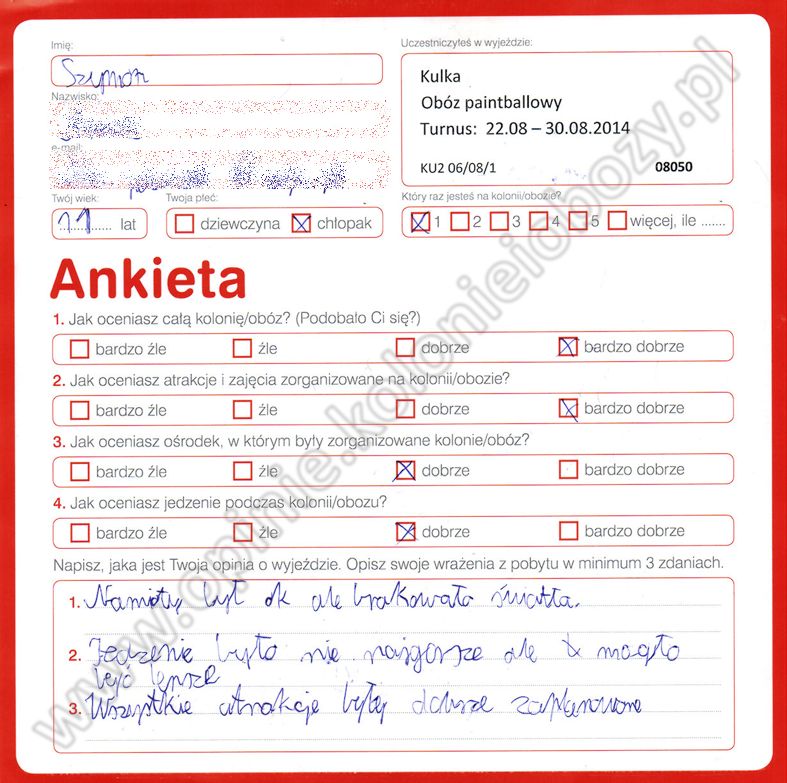 Imię:
Szymon
Nazwisko:
e-mail:
Twój wiek:
11 lat
Twoja płeć:
dziewczyna chłopak
Uczestniczyłeś w wyjeździe:
Kulka
Obóz paintballowy
Turnus: 22.08 – 30.08.2014
KU2 06/08/1 08050
Który raz jesteś na kolonii/obozie?
1 2 3 4 5 więcej, ile .......
Ankieta
1. Jak oceniasz całą kolonię/obóz? (Podobało Ci się?)
bardzo źle źle dobrze bardzo dobrze
2. Jak oceniasz atrakcje i zajęcia zorganizowane na kolonii/obozie?
bardzo źle źle dobrze bardzo dobrze
3. Jak oceniasz ośrodek, w którym były zorganizowane kolonie/obóz?
bardzo źle źle dobrze bardzo dobrze
4. Jak oceniasz jedzenie podczas kolonii/obozu?
bardzo źle źle dobrze bardzo dobrze
Napisz, jaka jest Twoja opinia o wyjeździe. Opisz swoje wrażenia z pobytu w minimum 3 zdaniach.
1. Namioty był ok ale brakowało światła.
2. Jedzenie było nie najgorsze ale mogło
być lepsze
3. Wszystkie atrakcje były dobrze zaplanowane
www.opinie.kolonieiobozy.pl